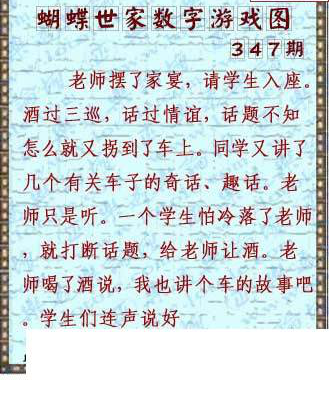 蝴蝶世家数字游戏图
347期
老师摆了家宴，请学生入座。
酒过三巡，话过情谊，话题不知
怎么就又拐到了车上。同学又讲了
几个有关车子的奇话、趣话。老
师只是听。一个学生怕冷落了老师
，就打断话题，给老师让酒。老
师喝了酒说，我也讲个车的故事吧
。学生们连声说好